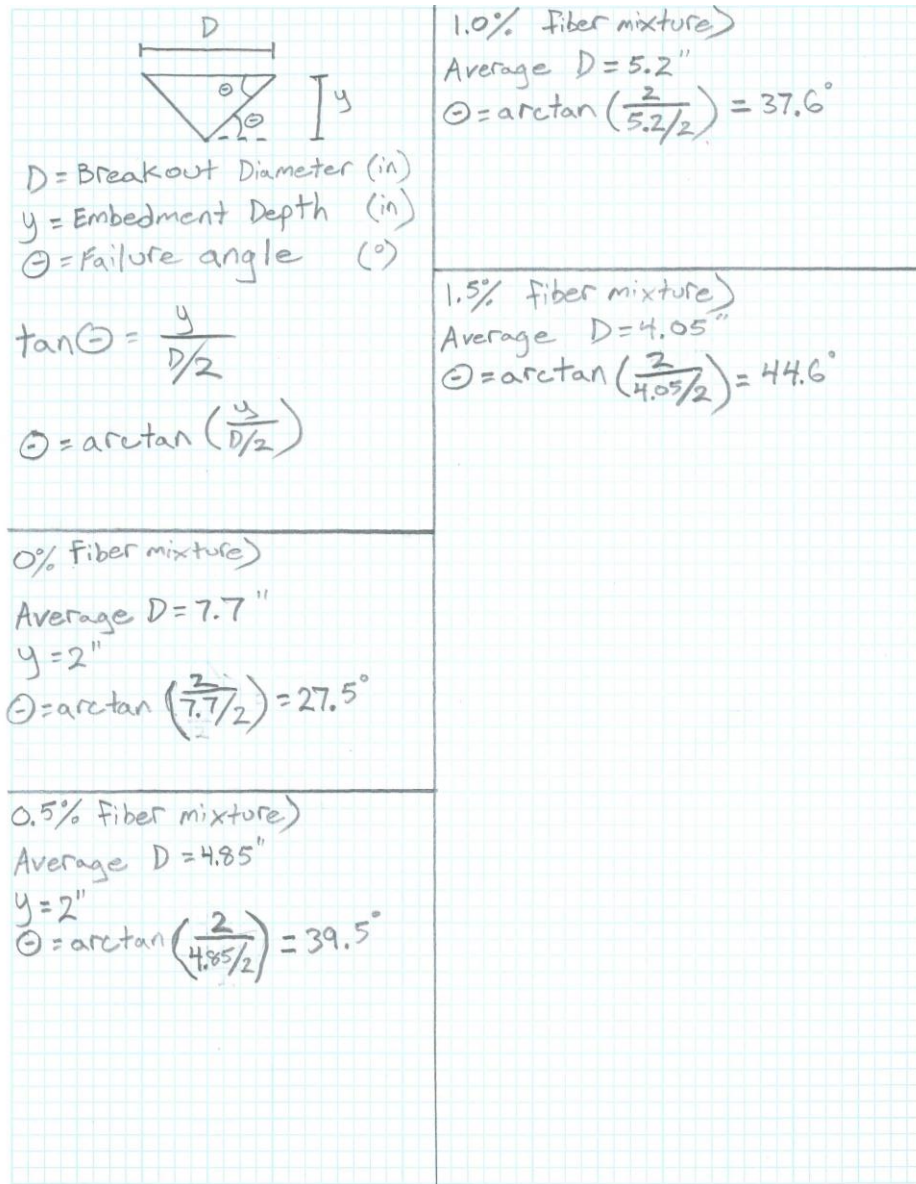 D
Θ
y
Θ
D = Breakout Diameter (in)
y = Embedment Depth (in)
Θ = Failure angle (°)
tanΘ = y / D/2
Θ = arctan (y / D/2)
0% fiber mixture)
Average D = 7.7"
y = 2"
Θ = arctan (2 / 7.7/2) = 27.5°
0.5% fiber mixture)
Average D = 4.85"
y = 2"
Θ = arctan (2 / 4.85/2) = 39.5°
1.0% fiber mixture)
Average D = 5.2"
Θ = arctan (2 / 5.2/2) = 37.6°
1.5% fiber mixture)
Average D = 4.05"
Θ = arctan (2 / 4.05/2) = 44.6°